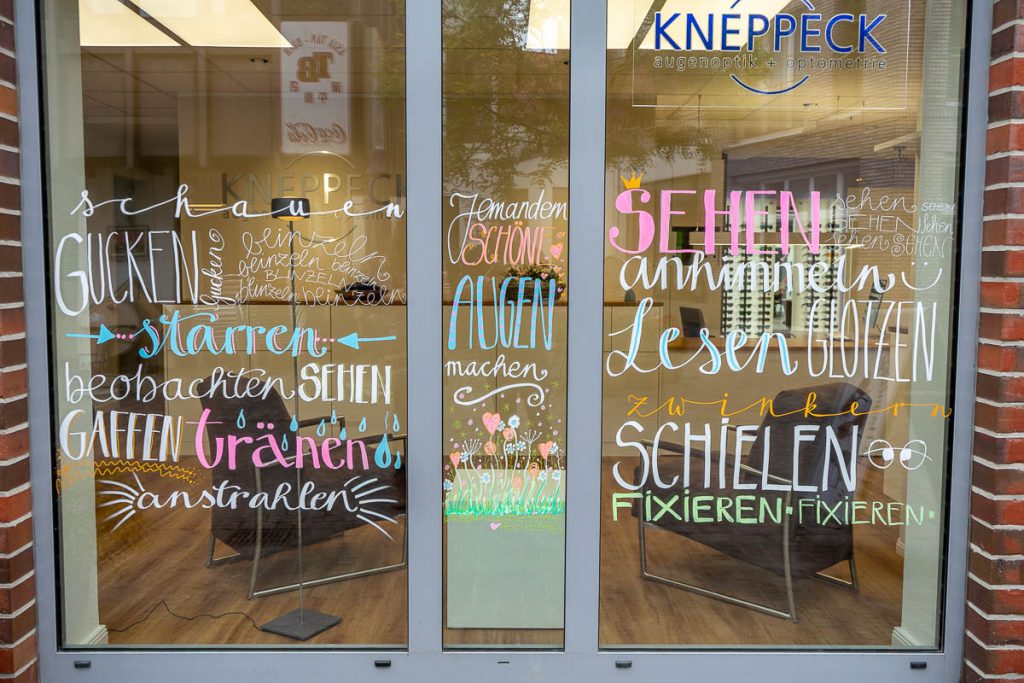 KNEPPECK
augenoptik + optometrie
TB
Coca-Cola
KNEPPECK
schauen
GUCKEN gucken
blinzeln
blinzeln blinzeln
BLINZELN
blinzeln blinzeln
starren
beobachten SEHEN
GAFFEN tränen
anstrahlen
Jemandem
SCHÖNE
AUGEN
machen
SEHEN sehen SEHEN
SEHEN sehen
sehen SEHEN
anhimmeln
Lesen GLOTZEN
zwinkern
SCHIELEN
FIXIEREN • FIXIEREN •